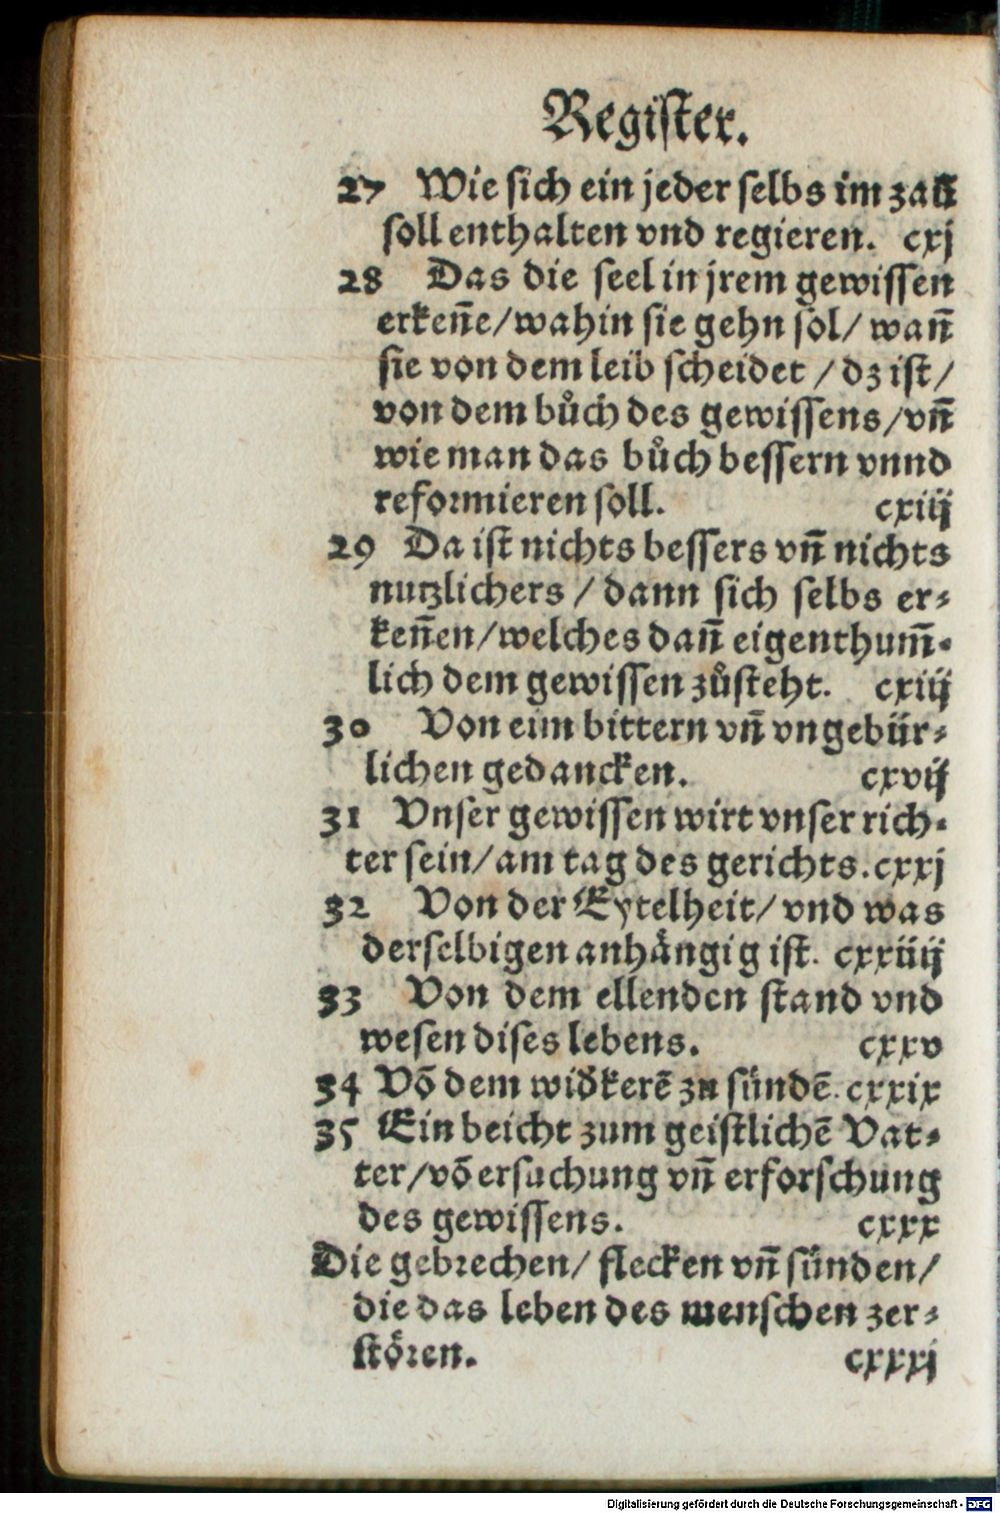 Register.
27 Wie sich ein jeder selbs im zaů
soll enthalten vnd regieren. cxj
28 Das die seel in jrem gewissen
erkeñe/wahin sie gehn sol/ wañ
sie von dem leib scheidet /dz ist/
von dem bůch des gewissens/vñ
wie man das bůch bessern vnnd
reformieren soll. cxiij
29 Da ist nichts bessers vñ nichts
nutzlichers / dann sich selbs er-
keñen/welches dañ eigenthum̃-
lich dem gewissen zůsteht. cxiij
30 Von eim bittern vñ vngebür-
lichen gedancken. cxvij
31 Vnser gewissen wirt vnser rich-
ter sein/am tag des gerichts. cxxj
32 Von der Eytelheit/ vnd was
derselbigen anhåñgig ist. cxxiiij
33 Von dem ellenden stand vnd
wesen dises lebens. cxxv
34 Võ dem wid̃kerẽ zu sündẽ. cxxix
35 Ein beicht zum geistlichẽ Vat-
ter/võ ersuchung vñ erforschung
des gewissens. cxxx
Die gebrechen/ flecken vñ sünden/
die das leben des menschen zer-
stören. cxxxj
Digitalisierung gefördert durch die Deutsche Forschungsgemeinschaft - DFG